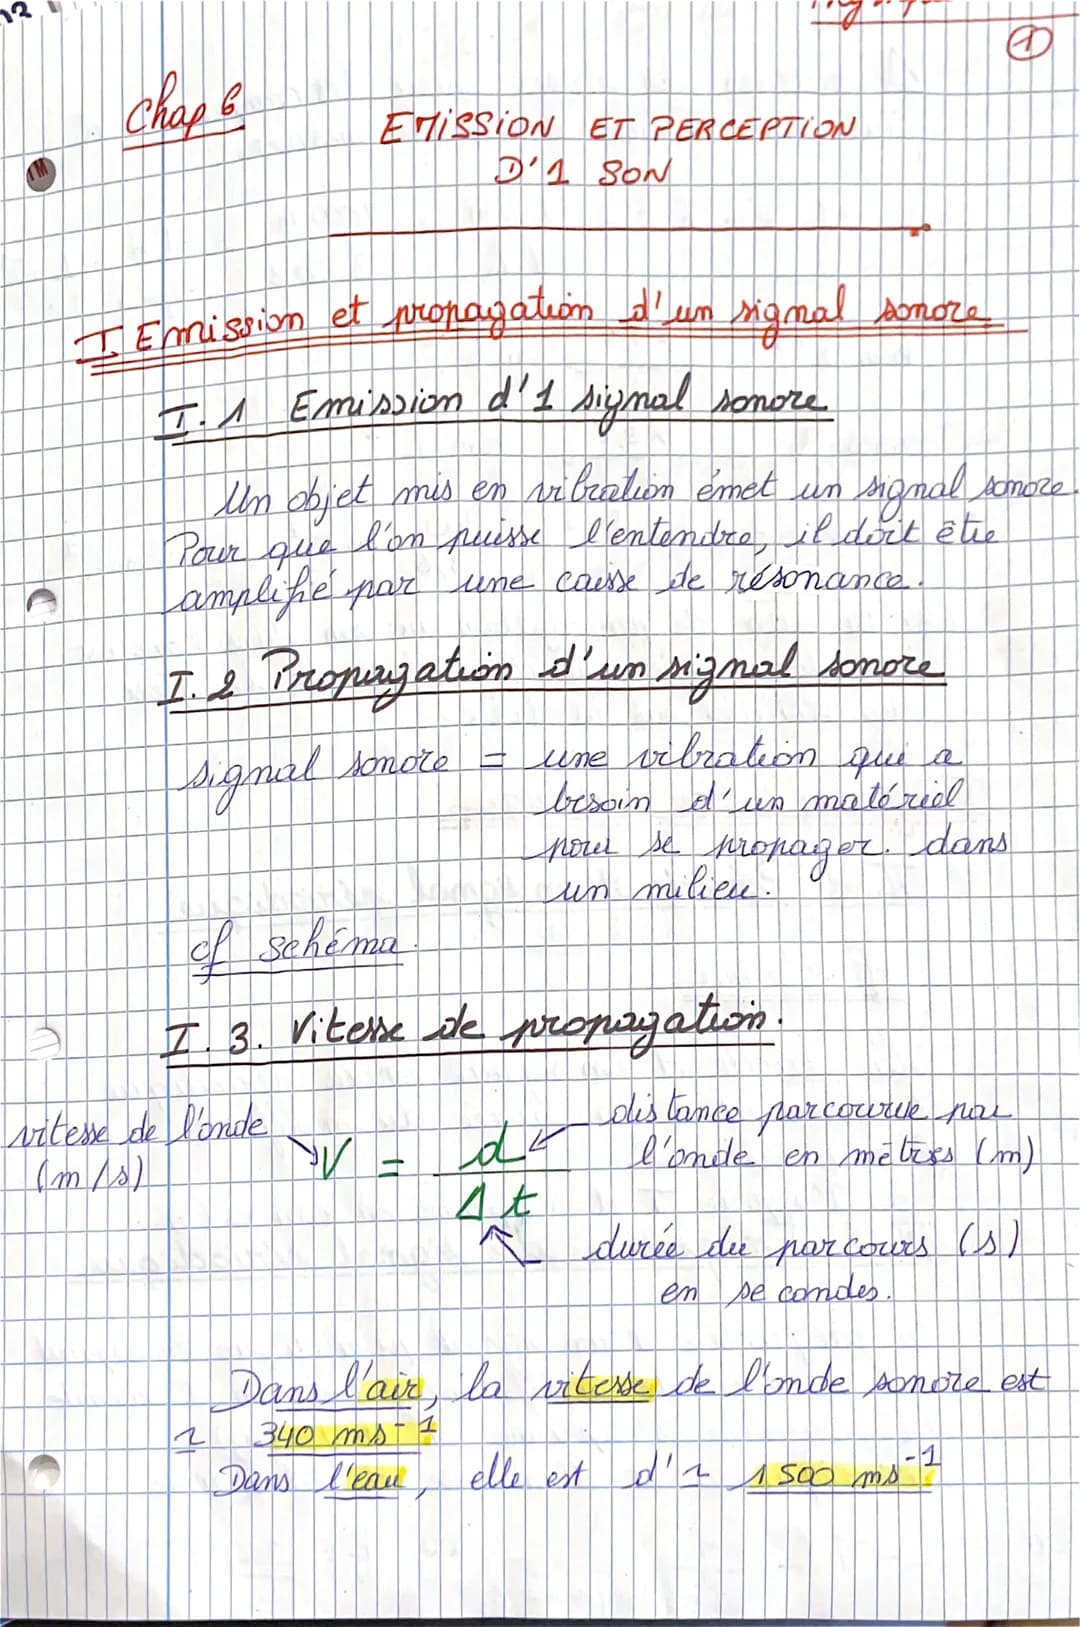 12
①
Chap 6
EMISSION ET PERCEPTION
D'1 SON
I. Emission et propagation d'un signal sonore
I.1 Emission d'1 signal sonore
Un objet mis en vibration émet un signal sonore.
Pour que l'on puisse l'entendre, il doit être
amplifié par une caisse de résonance.
I.2 Propagation d'un signal sonore
signal sonore = une vibration qui a
besoin d'un matériel
pour se propager. dans
un milieu.
cf schéma.
I.3. Vitesse de propagation.
vitesse de l'onde
(m/s)
V = d / Δt
distance parcourue par
l'onde en mètres (m)
durée du parcours (s)
en secondes.
Dans l'air, la vitesse de l'onde sonore est
~ 340 ms⁻¹
Dans l'eau, elle est d'~ 1500 ms⁻¹